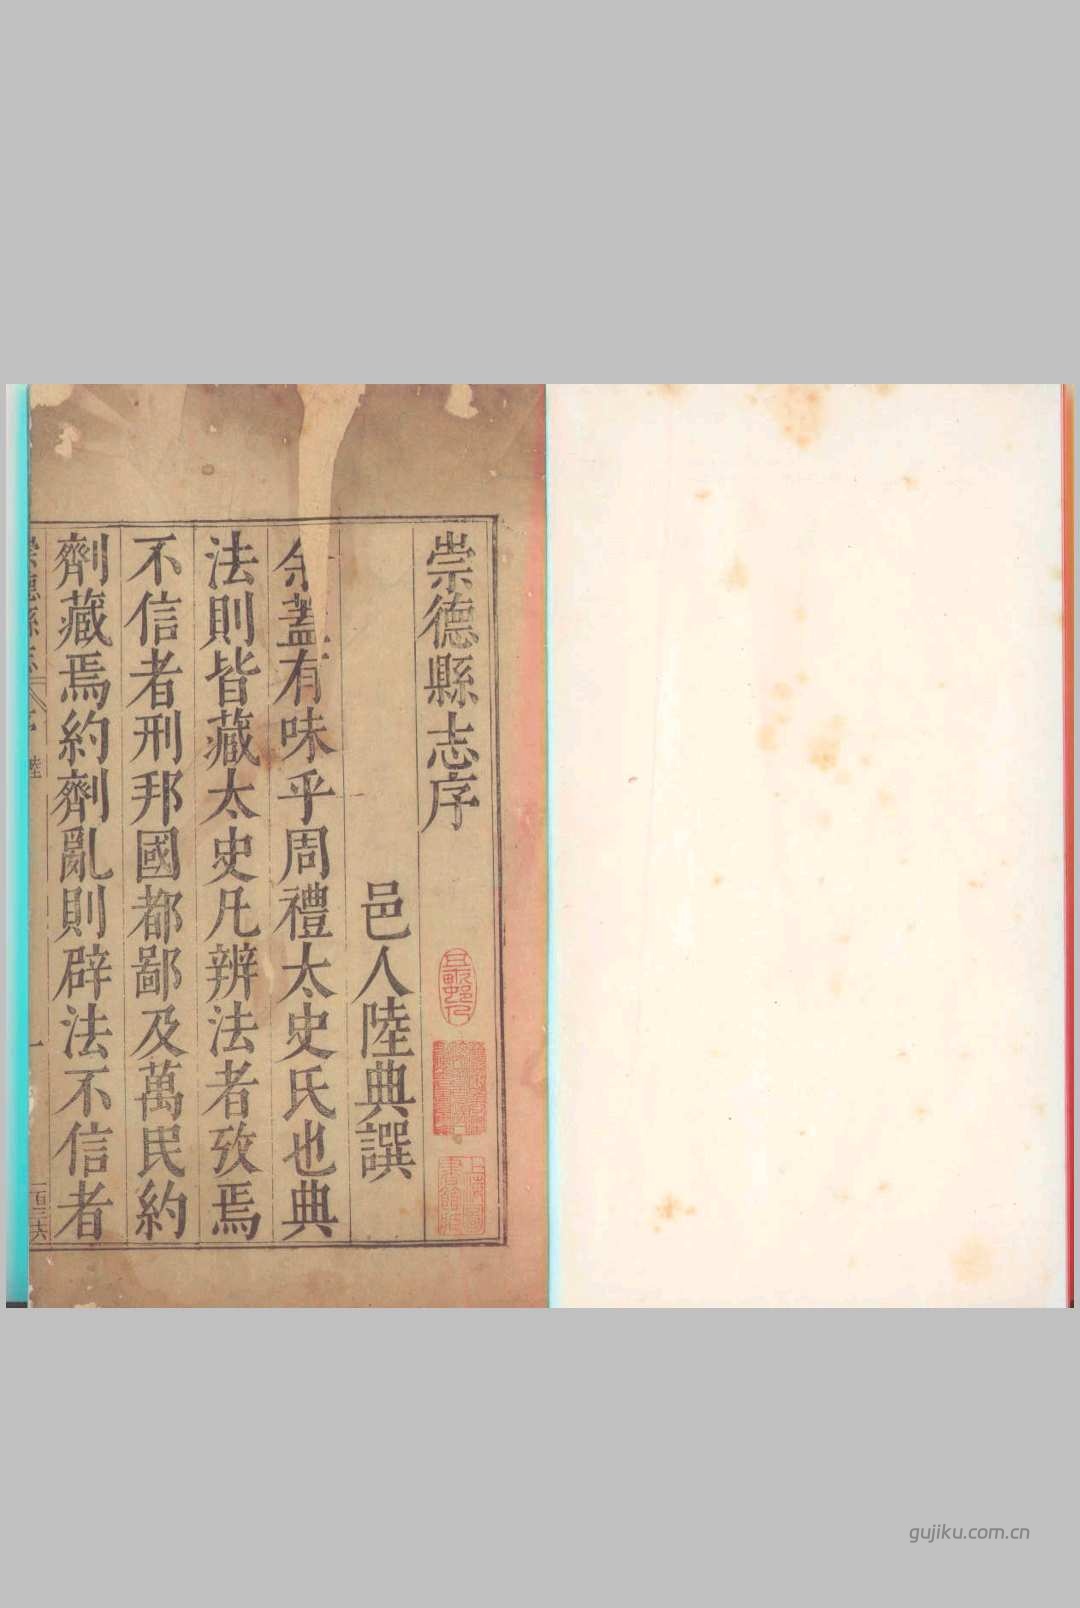 崇德縣志序
邑人陸典譔
余蓋有味乎周禮太史氏也典
法則皆藏太史凡辨法者攷焉
不信者刑邦國都鄙及萬民約
劑藏焉約劑亂則辟法不信者
崇德縣志 序 陸 一
gujiku.com.cn